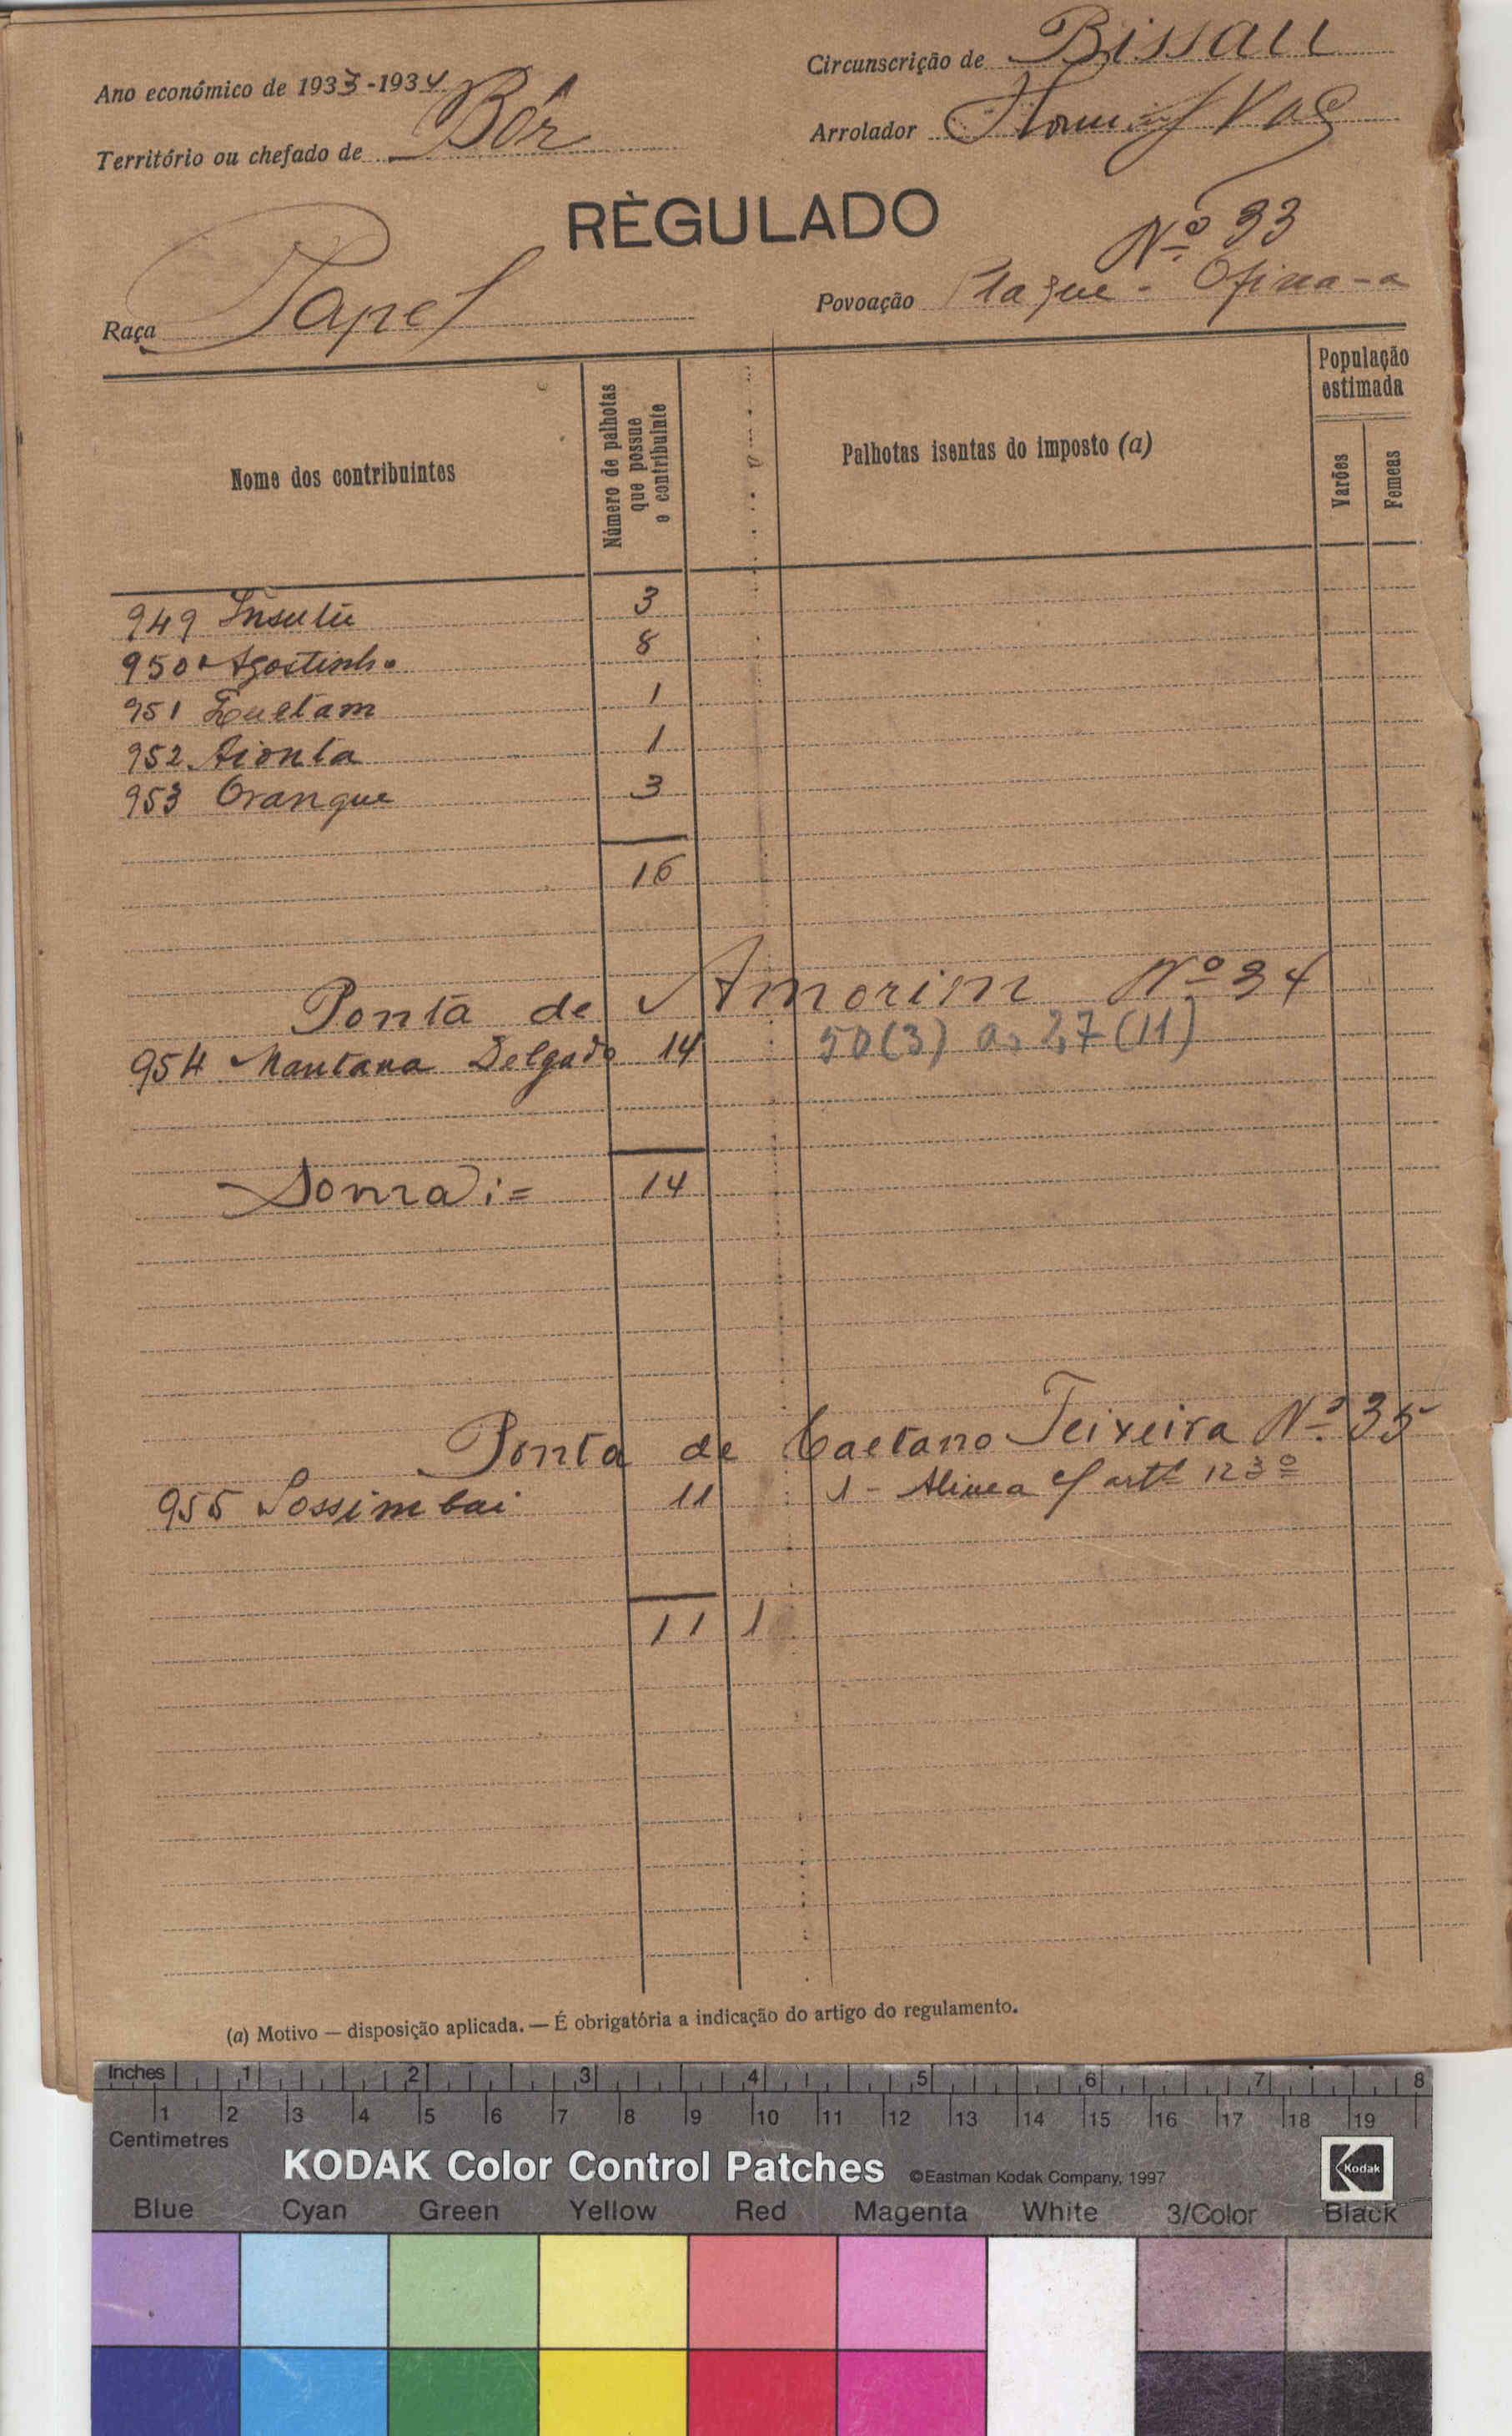 Ano económico de 1933-1934
Circunscrição de Bissau
Território ou chefado de Bór
Arrolador Vaz
RÈGULADO
Nº 33
Raça Papel
Povoação
Nome dos contribuintes
Número de palhotas que possue o contribuinte
Palhotas isentas do imposto (a)
População estimada
Varões
Femeas
949 Insulu 3
950 Agostinho 8
951 1
952 Aionta 1
953 Orangue 3
16
Ponta de Amorim Nº 34
954 Mantana Delgado 14 50(3) a, 27(11)
Soma:= 14
Ponta de Caetano Teixeira Nº 35
955 Sossimbai 11 1 - Alinea f artº 123º
11 1
(a) Motivo — disposição aplicada. — É obrigatória a indicação do artigo do regulamento.
Inches 1 2 3 4 5 6 7 8
1 2 3 4 5 6 7 8 9 10 11 12 13 14 15 16 17 18 19
Centimetres
KODAK Color Control Patches ©Eastman Kodak Company, 1997 Kodak
Blue Cyan Green Yellow Red Magenta White 3/Color Black